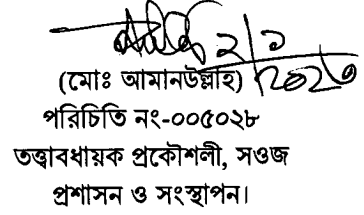 ২/১
(মোঃ আমানউল্লাহ) ২০২৩
পরিচিতি নং-০০৫০২৮
তত্ত্বাবধায়ক প্রকৌশলী, সওজ
প্রশাসন ও সংস্থাপন।